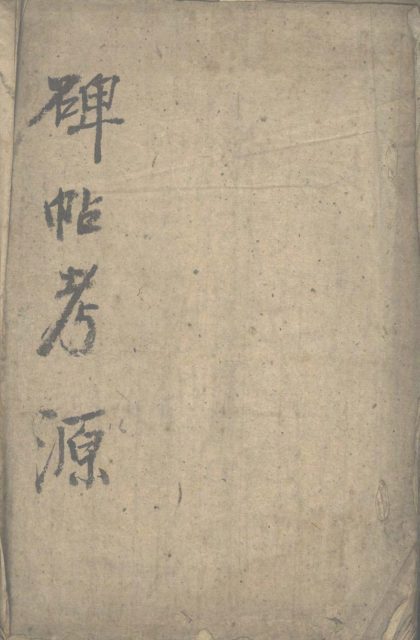 碑帖考源